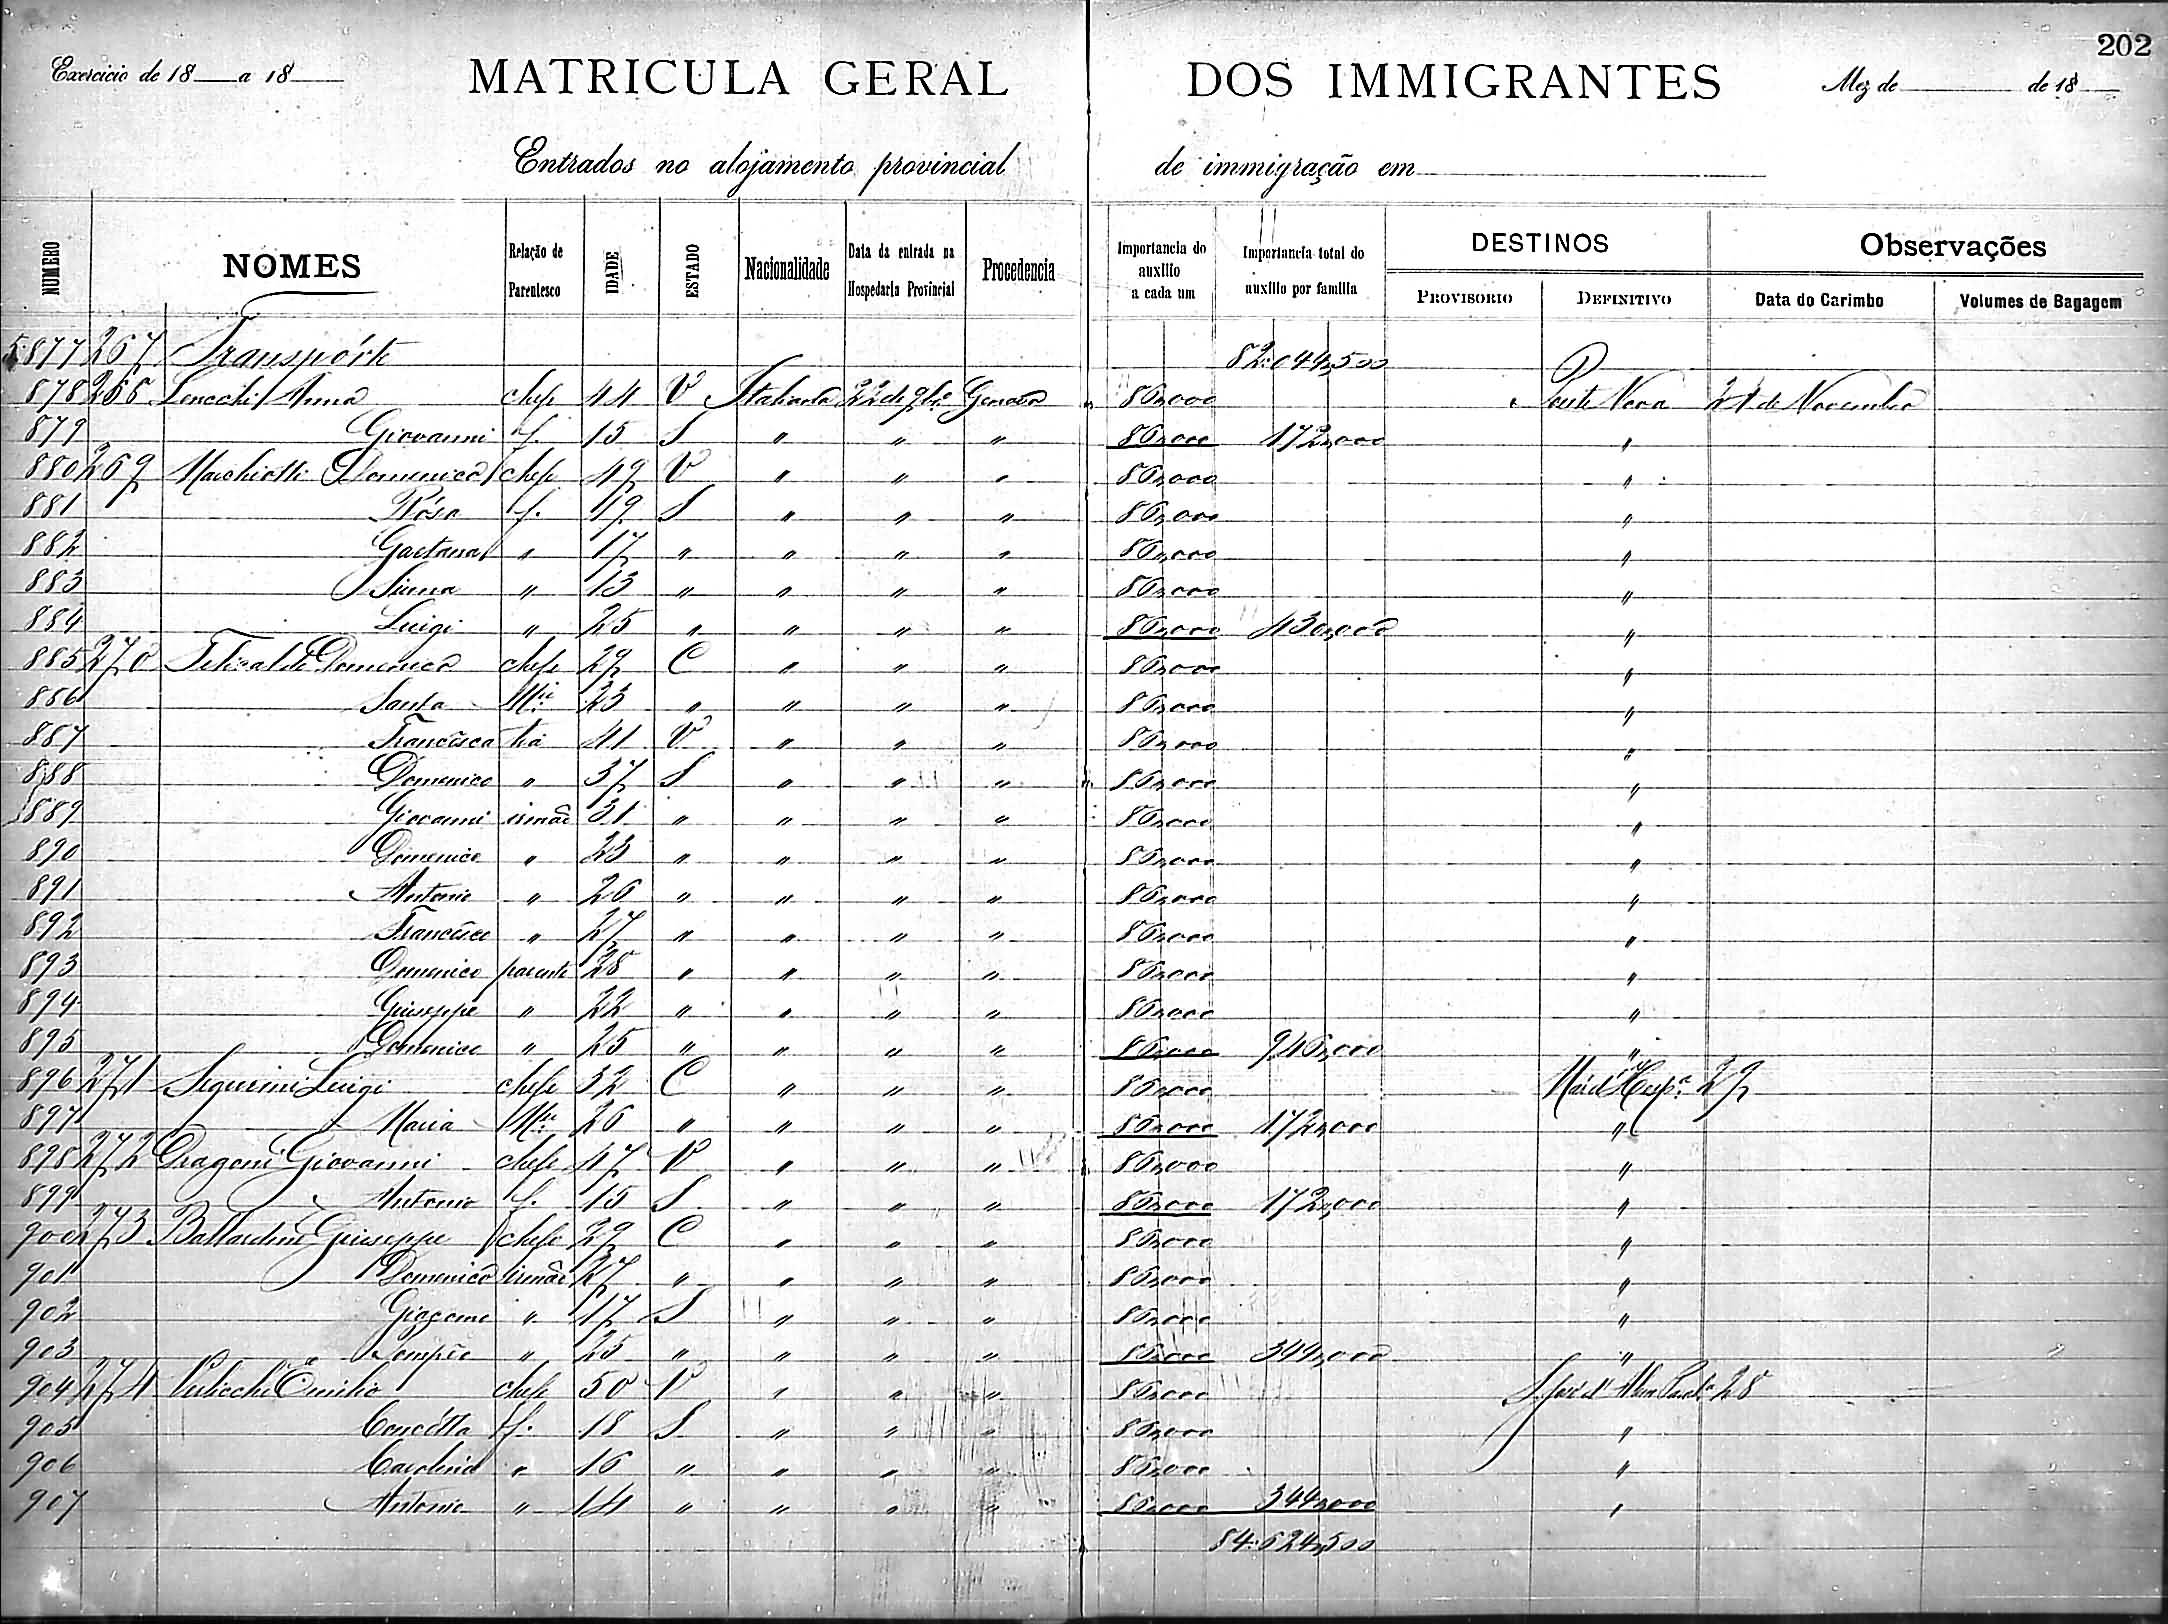 202
Exercicio de 18 a 18 MATRICULA GERAL DOS IMMIGRANTES Mez de de 18
Entrados no alojamento provincial de immigração em
NUMERO NOMES Relação de Parentesco IDADE ESTADO Nacionalidade Data da entrada na Hospedaria Provincial Procedencia Importancia do auxilio a cada um Importancia total do auxilio por familia DESTINOS PROVISORIO DEFINITIVO Observações Data do Carimbo Volumes de Bagagem
5.877 267 Transporte 82:044,500
878 268 Anna chefe 44 V Italiana 22 de 9br.o Genova 86,000 Ponte Nova 24 de Novembro
879 Giovanni f. 15 S " " " 86,000 172,000 "
880 269 Domenico chefe 49 V " " " 86,000 "
881 Rosa f. 19 S " " " 86,000 "
882 Gaetana " 17 " " " " 86,000 "
883 " 13 " " " " 86,000 "
884 Luigi " 25 " " " " 86,000 430,000 "
885 270 Domenico chefe 29 C " " " 86,000 "
886 Santa Mer 23 " " " " 86,000 "
887 Francisca tia 41 V " " " 86,000 "
888 Domenico " 37 S " " " 86,000 "
889 Giovanni irmão 31 " " " " 86,000 "
890 Domenico " 23 " " " " 86,000 "
891 Antonio " 26 " " " " 86,000 "
892 Francisco " 27 " " " " 86,000 "
893 Domenico parente 28 " " " " 86,000 "
894 Giuseppe " 22 " " " " 86,000 "
895 Domenico " 25 " " " " 86,000 946,000 "
896 271 Luigi chefe 32 C " " " 86,000 Mar d'Hesp.a 29
897 Maria Mer 26 " " " " 86,000 172,000 "
898 272 Dragoni Giovanni chefe 47 V " " " 86,000 "
899 Antonio f. 15 S " " " 86,000 172,000 "
900 273 Ballardini Giuseppe chefe 29 C " " " 86,000 "
901 Domenico irmão 27 " " " " 86,000 "
902 Giacomo " 17 S " " " 86,000 "
903 " 25 " " " " 86,000 344,000 "
904 274 Emilio chefe 50 V " " " 86,000 S. José d'Alem Parah.a 28
905 Concetta f. 18 S " " " 86,000 "
906 Carolina " 16 " " " " 86,000 "
907 Antonio " 14 " " " " 86,000 344,000 "
84:624,500